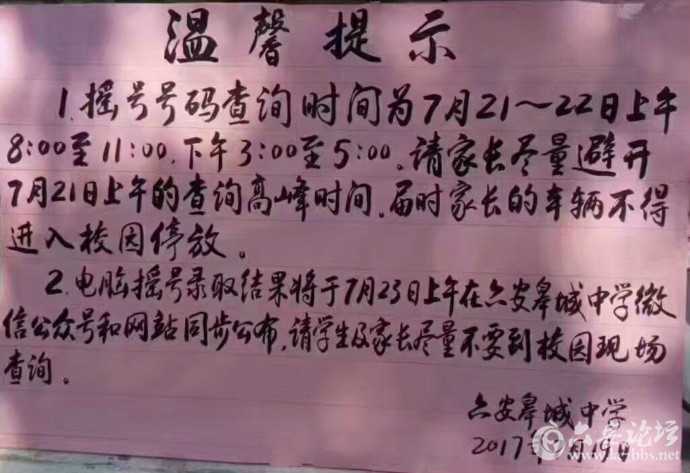 温馨提示
1.摇号号码查询时间为7月21~22日上午
8:00至11:00.下午3:00至5:00。请家长尽量避开
7月21日上午的查询高峰时间.届时家长的车辆不得
进入校园停放。
2.电脑摇号录取结果将于7月23日上午在六安皋城中学微
信公众号和网站同步公布,请学生及家长尽量不要到校园现场
查询。
六安皋城中学
2017年
六安论坛
bbs.net